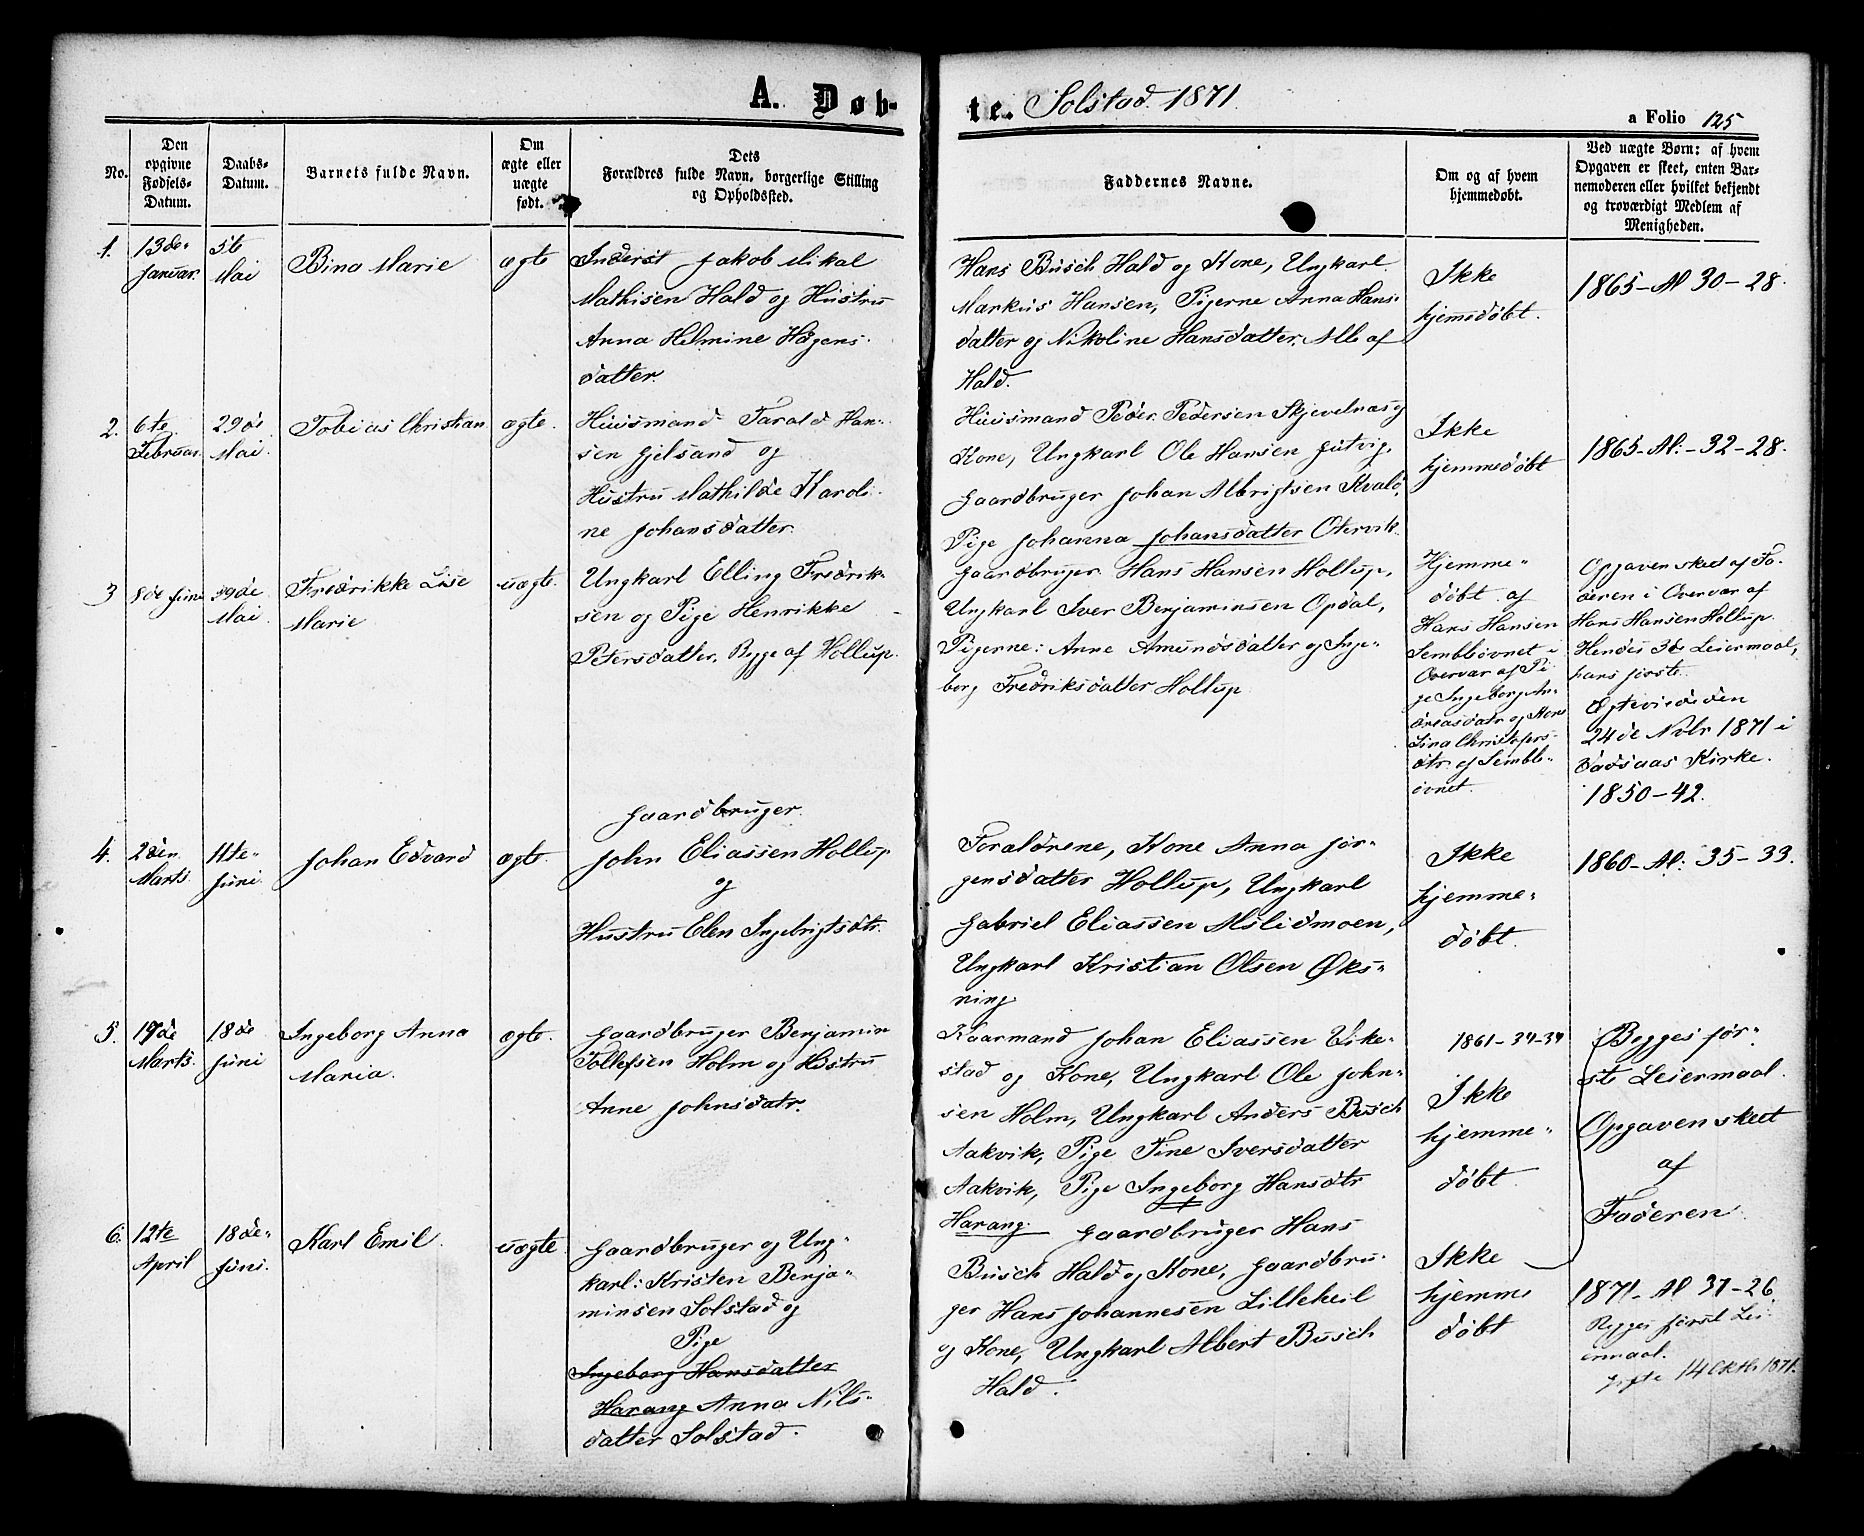 A. Døb-
te. Solstad 1871.
a Folio 125
No.
Den
opgivne
Fødsels-
Datum.
Daabs-
Datum.
Barnets fulde Navn.
Om
ægte eller
uægte
født.
Dets
Forældres fulde Navn, borgerlige Stilling
og Opholdssted.
Faddernes Navne.
Om og af hvem
hjemmedøbt.
Ved uægte Børn: af hvem
Opgaven er skeet, enten Bar-
nemoderen eller hvilket bekjendt
og troværdigt Medlem af
Menigheden.
1.
13de
Januar.
5te
Mai
Bina Marie
ægte
Inderst Jakob Mikal
Mathisen Hald og Hustru
Anna Helmine Hagens-
datter.
Hans Busch Hald og Kone, Ungkarl
Markus Hansen, Pigerne Anna Hans-
datter og Nikoline Hansdatter. Alle af
Hald.
Ikke
hjemdøbt.
1865-Al 30-28.
2.
6te
Februar.
29de
Mai.
Tobias Christian
ægte.
Huusmand Tarald Han-
sen Gjelsand og
Hustru Mathilde Karoli-
ne Johansdatter.
Huusmand Peder Pedersen Skjevelnæs og
Kone, Ungkarl Ole Hansen Gutvig,
Gaardbruger Johan Albrigtsen Kvalø,
Pige Johanna Johansdatter Otervik.
Ikke
hjemmedøbt
1865-Al:-32-28.
3
8de Juni
29de
Mai.
Fredrikke Lise
Marie
uægte.
Ungkarl Elling Fredrik-
sen og Pige Henrikke
Petersdatter, Begge af Hollup.
Gaardbruger Hans Hansen Hollup,
Ungkarl Iver Benjaminsen Opdal,
Pigerne: Anne Amundsdatter og Inge-
borg Fredriksdatter Hollup
Hjemme-
døbt af
Hans Hansen
Sembleovnet i
Overvær af Pi
ge Ingeborg An-
dreasdatr og Kone
Lina Christofers-
dtr. af Semble-
ovnet.
Opgaven skeet af Fa-
deren i Overvær af
Hans Hansen Hollup.
Hendes 3de Leiermaal,
hans første.
Ægteviede den
24de Novbr 1871 i
Vadsaas Kirke.
1850-42.
4.
2den
Marts.
11te
Juni.
Johan Edvard
ægte.
Gaardbruger
John Eliassen Hollup
og
Hustru Elen Ingebrigtsdtr.
Forældrene, Kone Anna Jør-
gensdatter Hollup, Ungkarl
Gabriel Eliassen Mslidmoen,
Ungkarl Kristian Olsen Øks-
ning
Ikke
hjemme-
døbt.
1860-Al: 35-33.
5.
19de
Marts.
18de
Juni
Ingeborg Anna
Maria.
ægte.
Gaardbruger Benjamin
Tollefsen Holm og Hustru
Anne Johnsdatr.
Kaarmand Johan Eliassen Eike-
stad og Kone, Ungkarl Ole John-
sen Holm, Ungkarl Anders Busch
Aakvik, Pige Tine Iversdatter
Aakvik, Pige Ingeborg Hansdtr
Harang.
1861-34-34
Ikke
hjemme-
døbt.
Begges før-
ste Leiermaal.
Opgaven skeet
af
Faderen.
6.
12te
April
18de
Juni.
Karl Emil.
uægte.
Gaardbruger og Ung-
karl: Kristen Benja-
minsen Solstad og
Pige
Ingeborg Hansdatter
Harang Anna Nils-
datter Solstad.
Gaardbruger Hans
Busch Hald og Kone, Gaardbru-
ger Hans Johannesen Lilleheil
og Kone, Ungkarl Albert Busch
Hald.
Ikke
hjemme
døbt
1871-Al 37-26.
Begges først Lei-
ermaal.
gifte 14 Oktb. 1871.